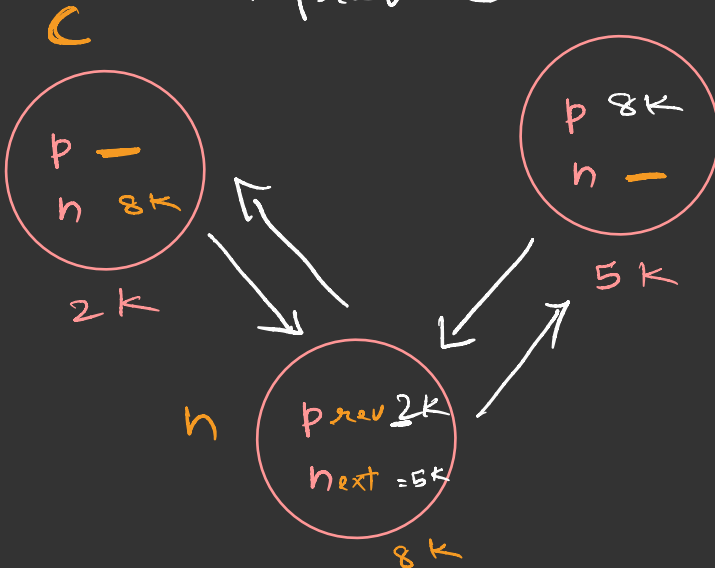 C
p —
n 8K
2K
p 8K
n —
5K
n
prev 2K
next =5K
8K